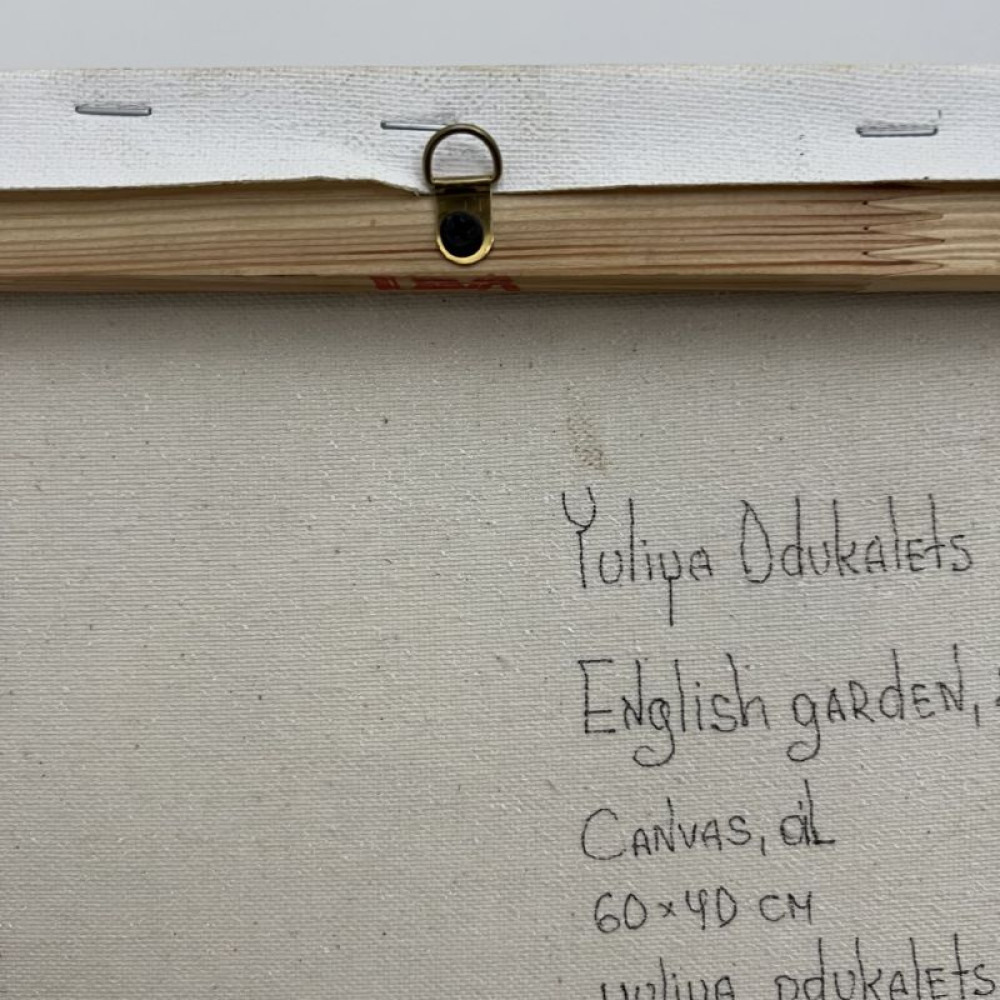 Yuliya Odukalets
English garden,
Canvas, oil
60×40 cm
yuliya odukalets